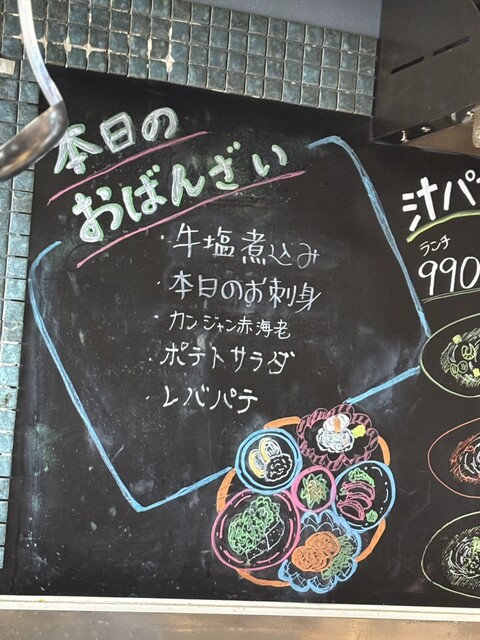 本日の
おばんざい
・牛塩煮込み
・本日のお刺身
・カンジャン赤海老
・ポテトサラダ
・レバパテ
汁パ
ランチ
990